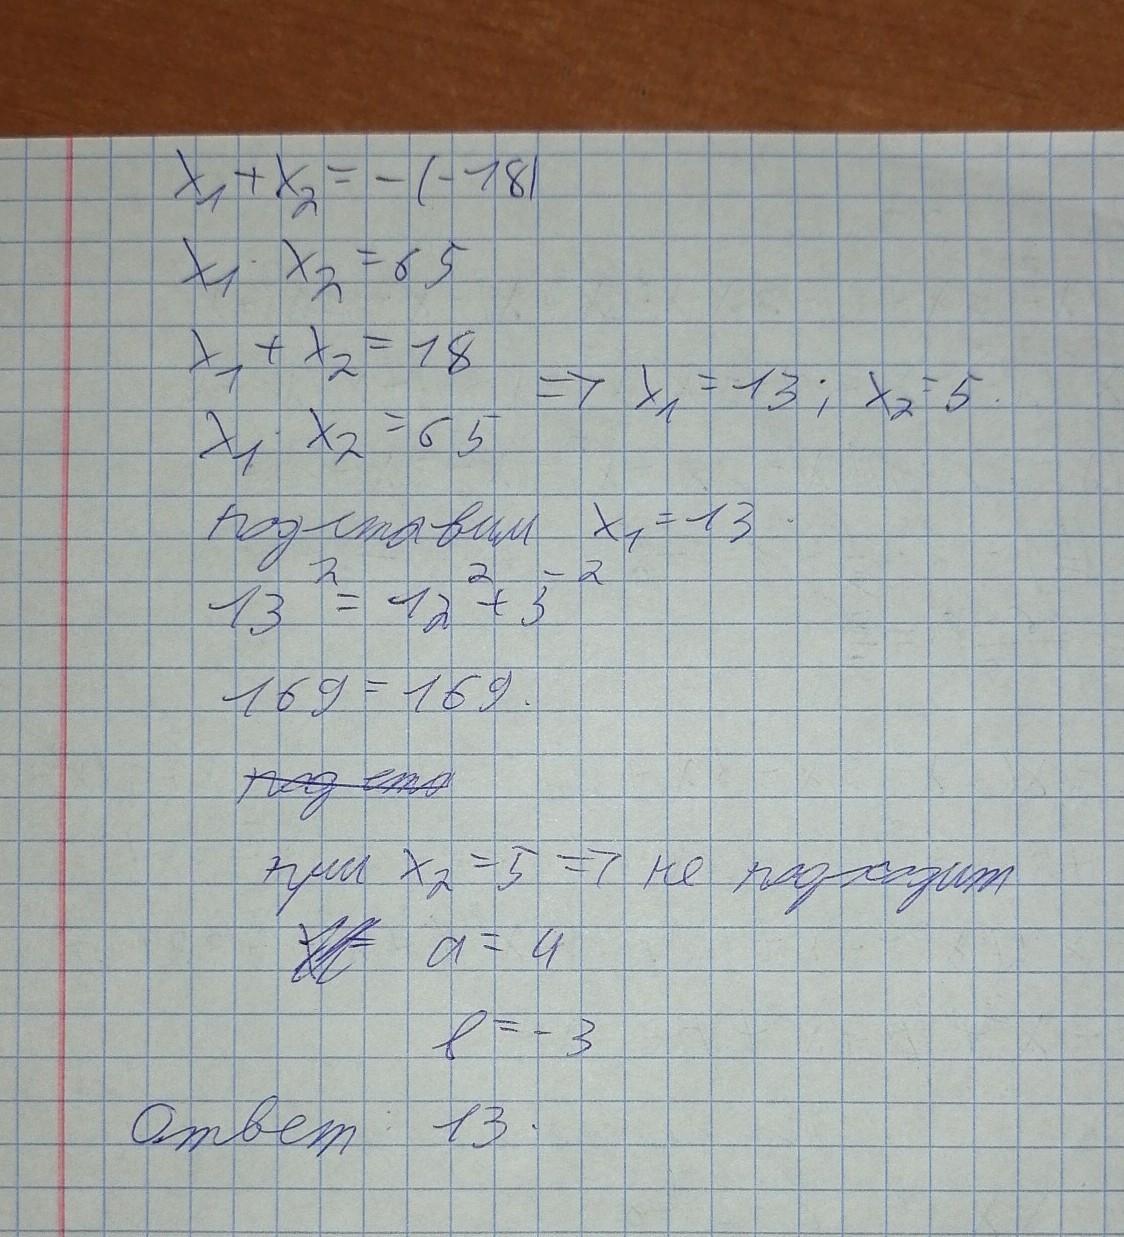 x₁ + x₂ = -(-18)
x₁ · x₂ = 65
x₁ + x₂ = 18
=> x₁ = 13; x₂ = 5.
x₁ · x₂ = 65
подставим x₁ = 13.
13² = 12² + 5²
169 = 169.
подста
при x₂ = 5 => не подходит
a = 4
b = -3
Ответ: 13.